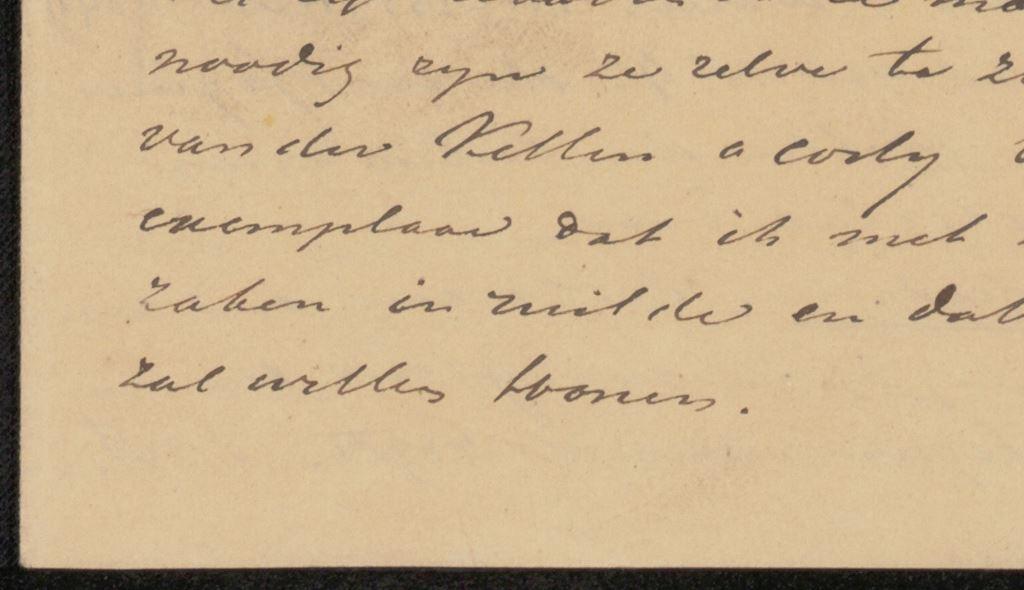 noodig zyn ze zelve te
van der Kellen a costy
exemplaar dat ik met
zaken in ruilde en dat
zal willen toonen.